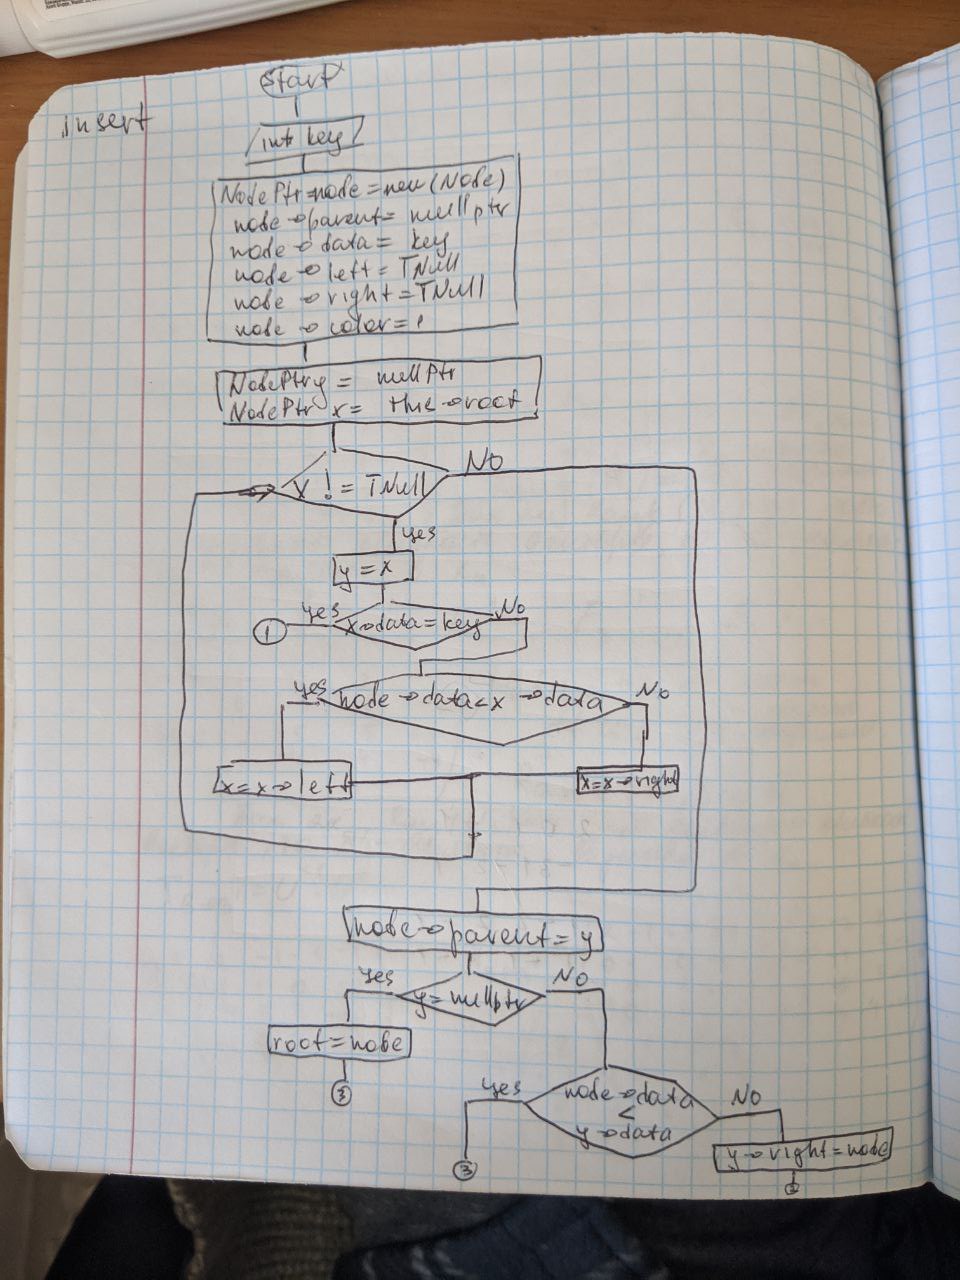 insert
start
int key
NodePtr node = new(Node)
node → parent = nullptr
node → data = key
node → left = TNull
node → right = TNull
node → color = 1
NodePtr y = nullptr
NodePtr x = → root
x != TNull
No
yes
y = x
yes
x → data = key
No
1
yes
node → data < x → data
No
x = x → left
x = x → right
node → parent = y
yes
y = nullptr
No
root = node
3
yes
node → data
<
y → data
No
3
y → right = node
2